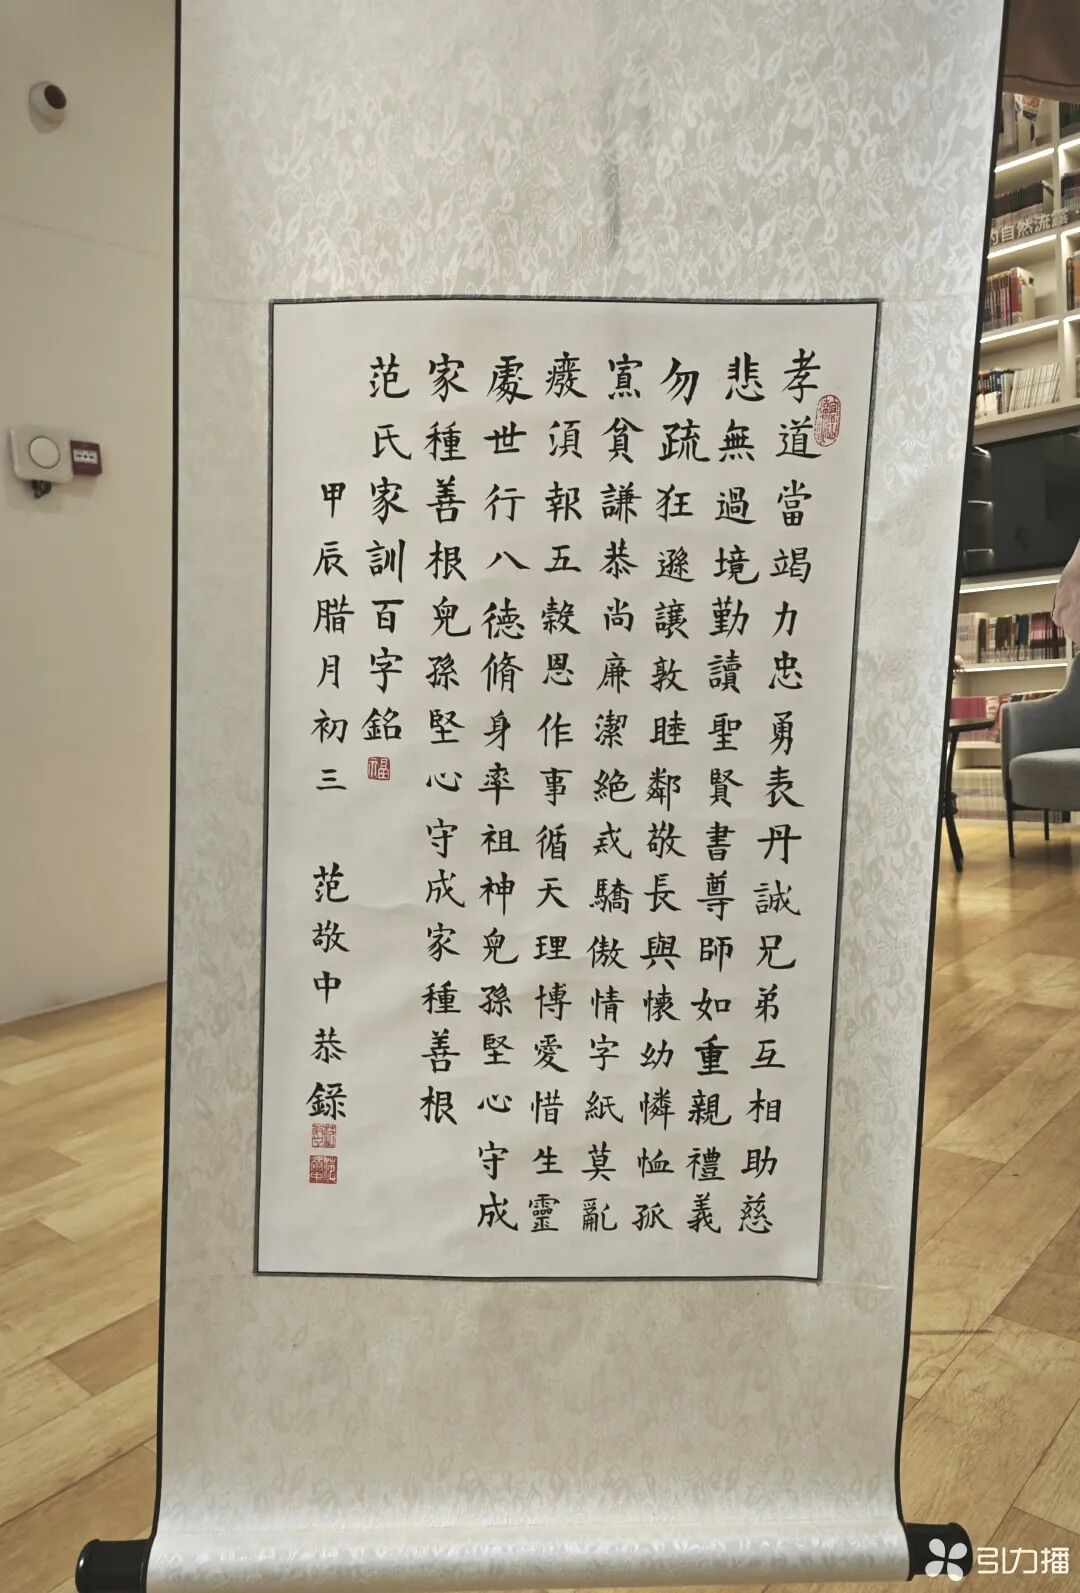 孝道當竭力忠勇表丹誠兄弟互相助慈
悲無過境勤讀聖賢書尊師如重親禮義
勿疏狂遜讓敦睦鄰敬長與懷幼憐恤孤
寡貧謙恭尚廉潔絕戒驕傲情字紙莫亂
癈須報五穀恩作事循天理博愛惜生靈
處世行八德脩身率祖神兒孫堅心守成
家種善根兒孫堅心守成家種善根
范氏家訓百字銘
甲辰腊月初三 范敬中恭錄
自然流露
引力播